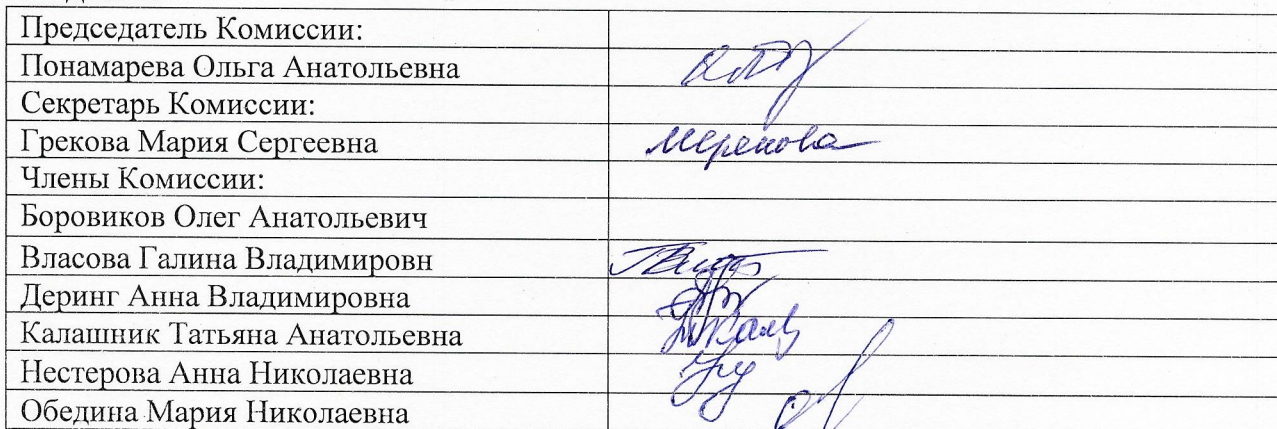 Председатель Комиссии:
Понамарева Ольга Анатольевна
Секретарь Комиссии:
Грекова Мария Сергеевна
Члены Комиссии:
Боровиков Олег Анатольевич
Власова Галина Владимировн
Деринг Анна Владимировна
Калашник Татьяна Анатольевна
Нестерова Анна Николаевна
Обедина Мария Николаевна